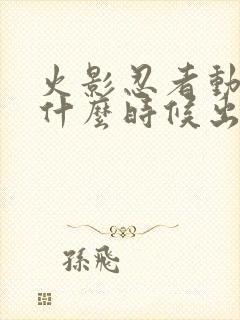 火影忍者動
什麼時候出
孫飛